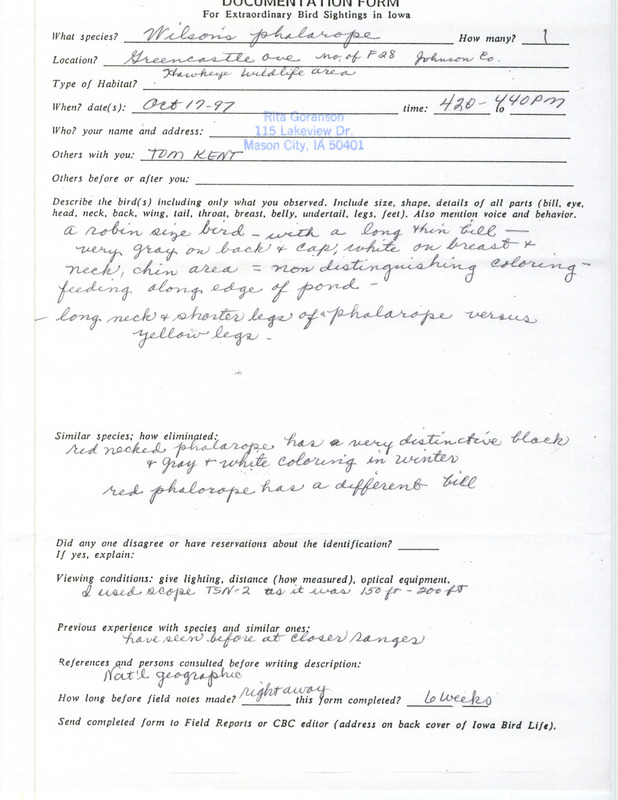 DOCUMENTATION FORM
For Extraordinary Bird Sightings in Iowa
What species? Wilson's phalarope How many? 1
Location? Greencastle Ave no. of F28 Johnson Co.
Hawkeye Wildlife area
Type of Habitat?
When? date(s): Oct 17-97 time: 420 - to 440 PM
Rita Goranson
Who? your name and address: 115 Lakeview Dr.
Mason City, IA 50401
Others with you: TOM KENT
Others before or after you:
Describe the bird(s) including only what you observed. Include size, shape, details of all parts (bill, eye,
head, neck, back, wing, tail, throat, breast, belly, undertail, legs, feet). Also mention voice and behavior.
a robin size bird - with a long thin bill -
very gray on back & cap, white on breast &
neck, chin area = non distinguishing coloring -
feeding along edge of pond -
- long neck & shorter legs of a phalarope versus
yellow legs -
Similar species; how eliminated:
red necked phalarope has a very distinctive black
& gray & white coloring in winter
red phalorope has a different bill
Did any one disagree or have reservations about the identification?
If yes, explain:
Viewing conditions: give lighting, distance (how measured), optical equipment.
I used scope TSN-2 as it was 150 ft - 200 ft
Previous experience with species and similar ones:
have seen before at closer ranges
References and persons consulted before writing description:
Nat'l geographic
How long before field notes made? right away this form completed? 6 weeks
Send completed form to Field Reports or CBC editor (address on back cover of Iowa Bird Life).